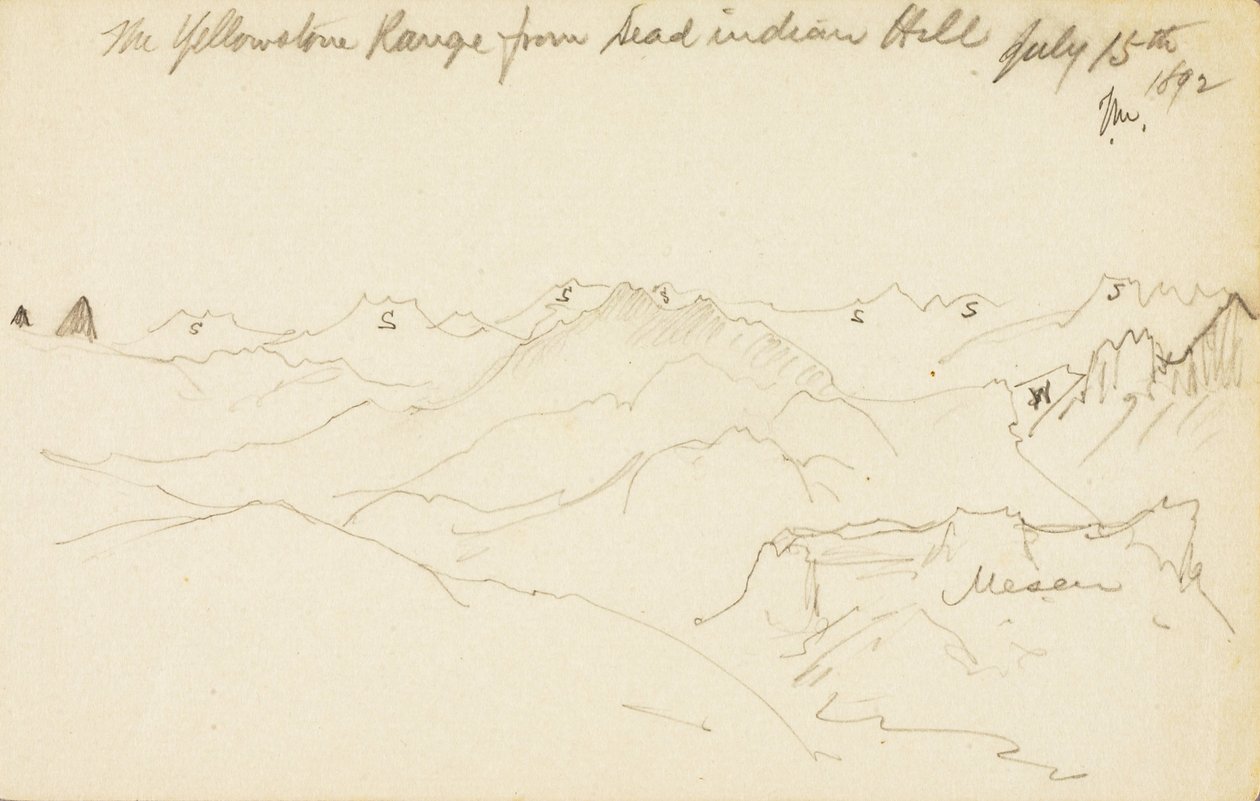 The Yellowstone Range from Dead indian Hill July 15th
1892
TM.
S S S S S S S
W
Mesa